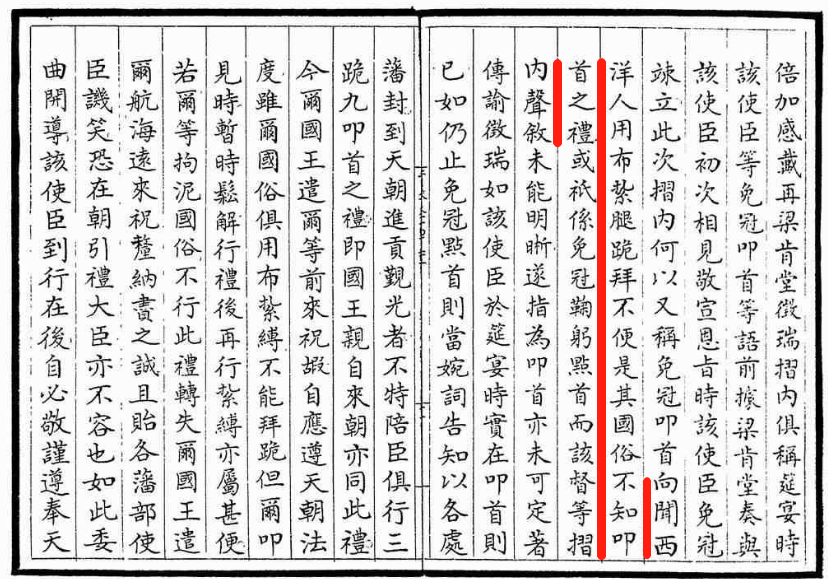 倍加感戴再梁肯堂徵瑞摺内俱稱筵宴時
該使臣等免冠叩首等語前據梁肯堂奏與
該使臣初次相見敬宣恩旨時該使臣免冠
竦立此次摺内何以又稱免冠叩首向聞西
洋人用布紮腿跪拜不便是其國俗不知叩
首之禮或祇係免冠鞠躬點首而該督等摺
内聲敘未能明晰遂指為叩首亦未可定著
傳諭徵瑞如該使臣於筵宴時實在叩首則
已如仍止免冠點首則當婉詞告知以各處
藩封到天朝進貢覲光者不特陪臣俱行三
跪九叩首之禮即國王親自來朝亦同此禮
今爾國王遣爾等前來祝嘏自應遵天朝法
度雖爾國俗俱用布紮縛不能拜跪但爾叩
見時暫時鬆解行禮後再行紮縛亦屬甚便
若爾等拘泥國俗不行此禮轉失爾國王遣
爾航海遠來祝釐納贐之誠且貽各藩部使
臣譏笑恐在朝引禮大臣亦不容也如此委
曲開導該使臣到行在後自必敬謹遵奉天